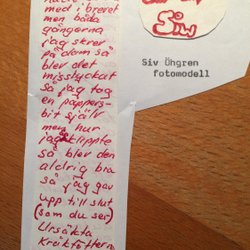 med i brevet
men båda
gångerna
jag skrev
på dom så
blev det
misslyckat
så jag tog
en pappers-
bit själv
men hur
jag klippte
så blev den
aldrig bra
så jag gav
upp till slut
(som du ser)
Ursäkta
kråkfötterna
Siw
Siv Öhgren
fotomodell